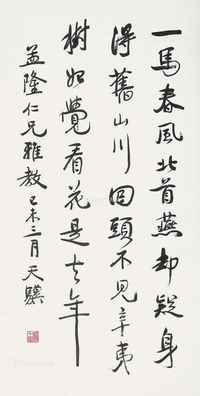 一馬春風北首燕却疑身
得舊山川回頭不見辛夷
樹始覺看花是去年
孟隆仁兄雅教 己未三月 天驥